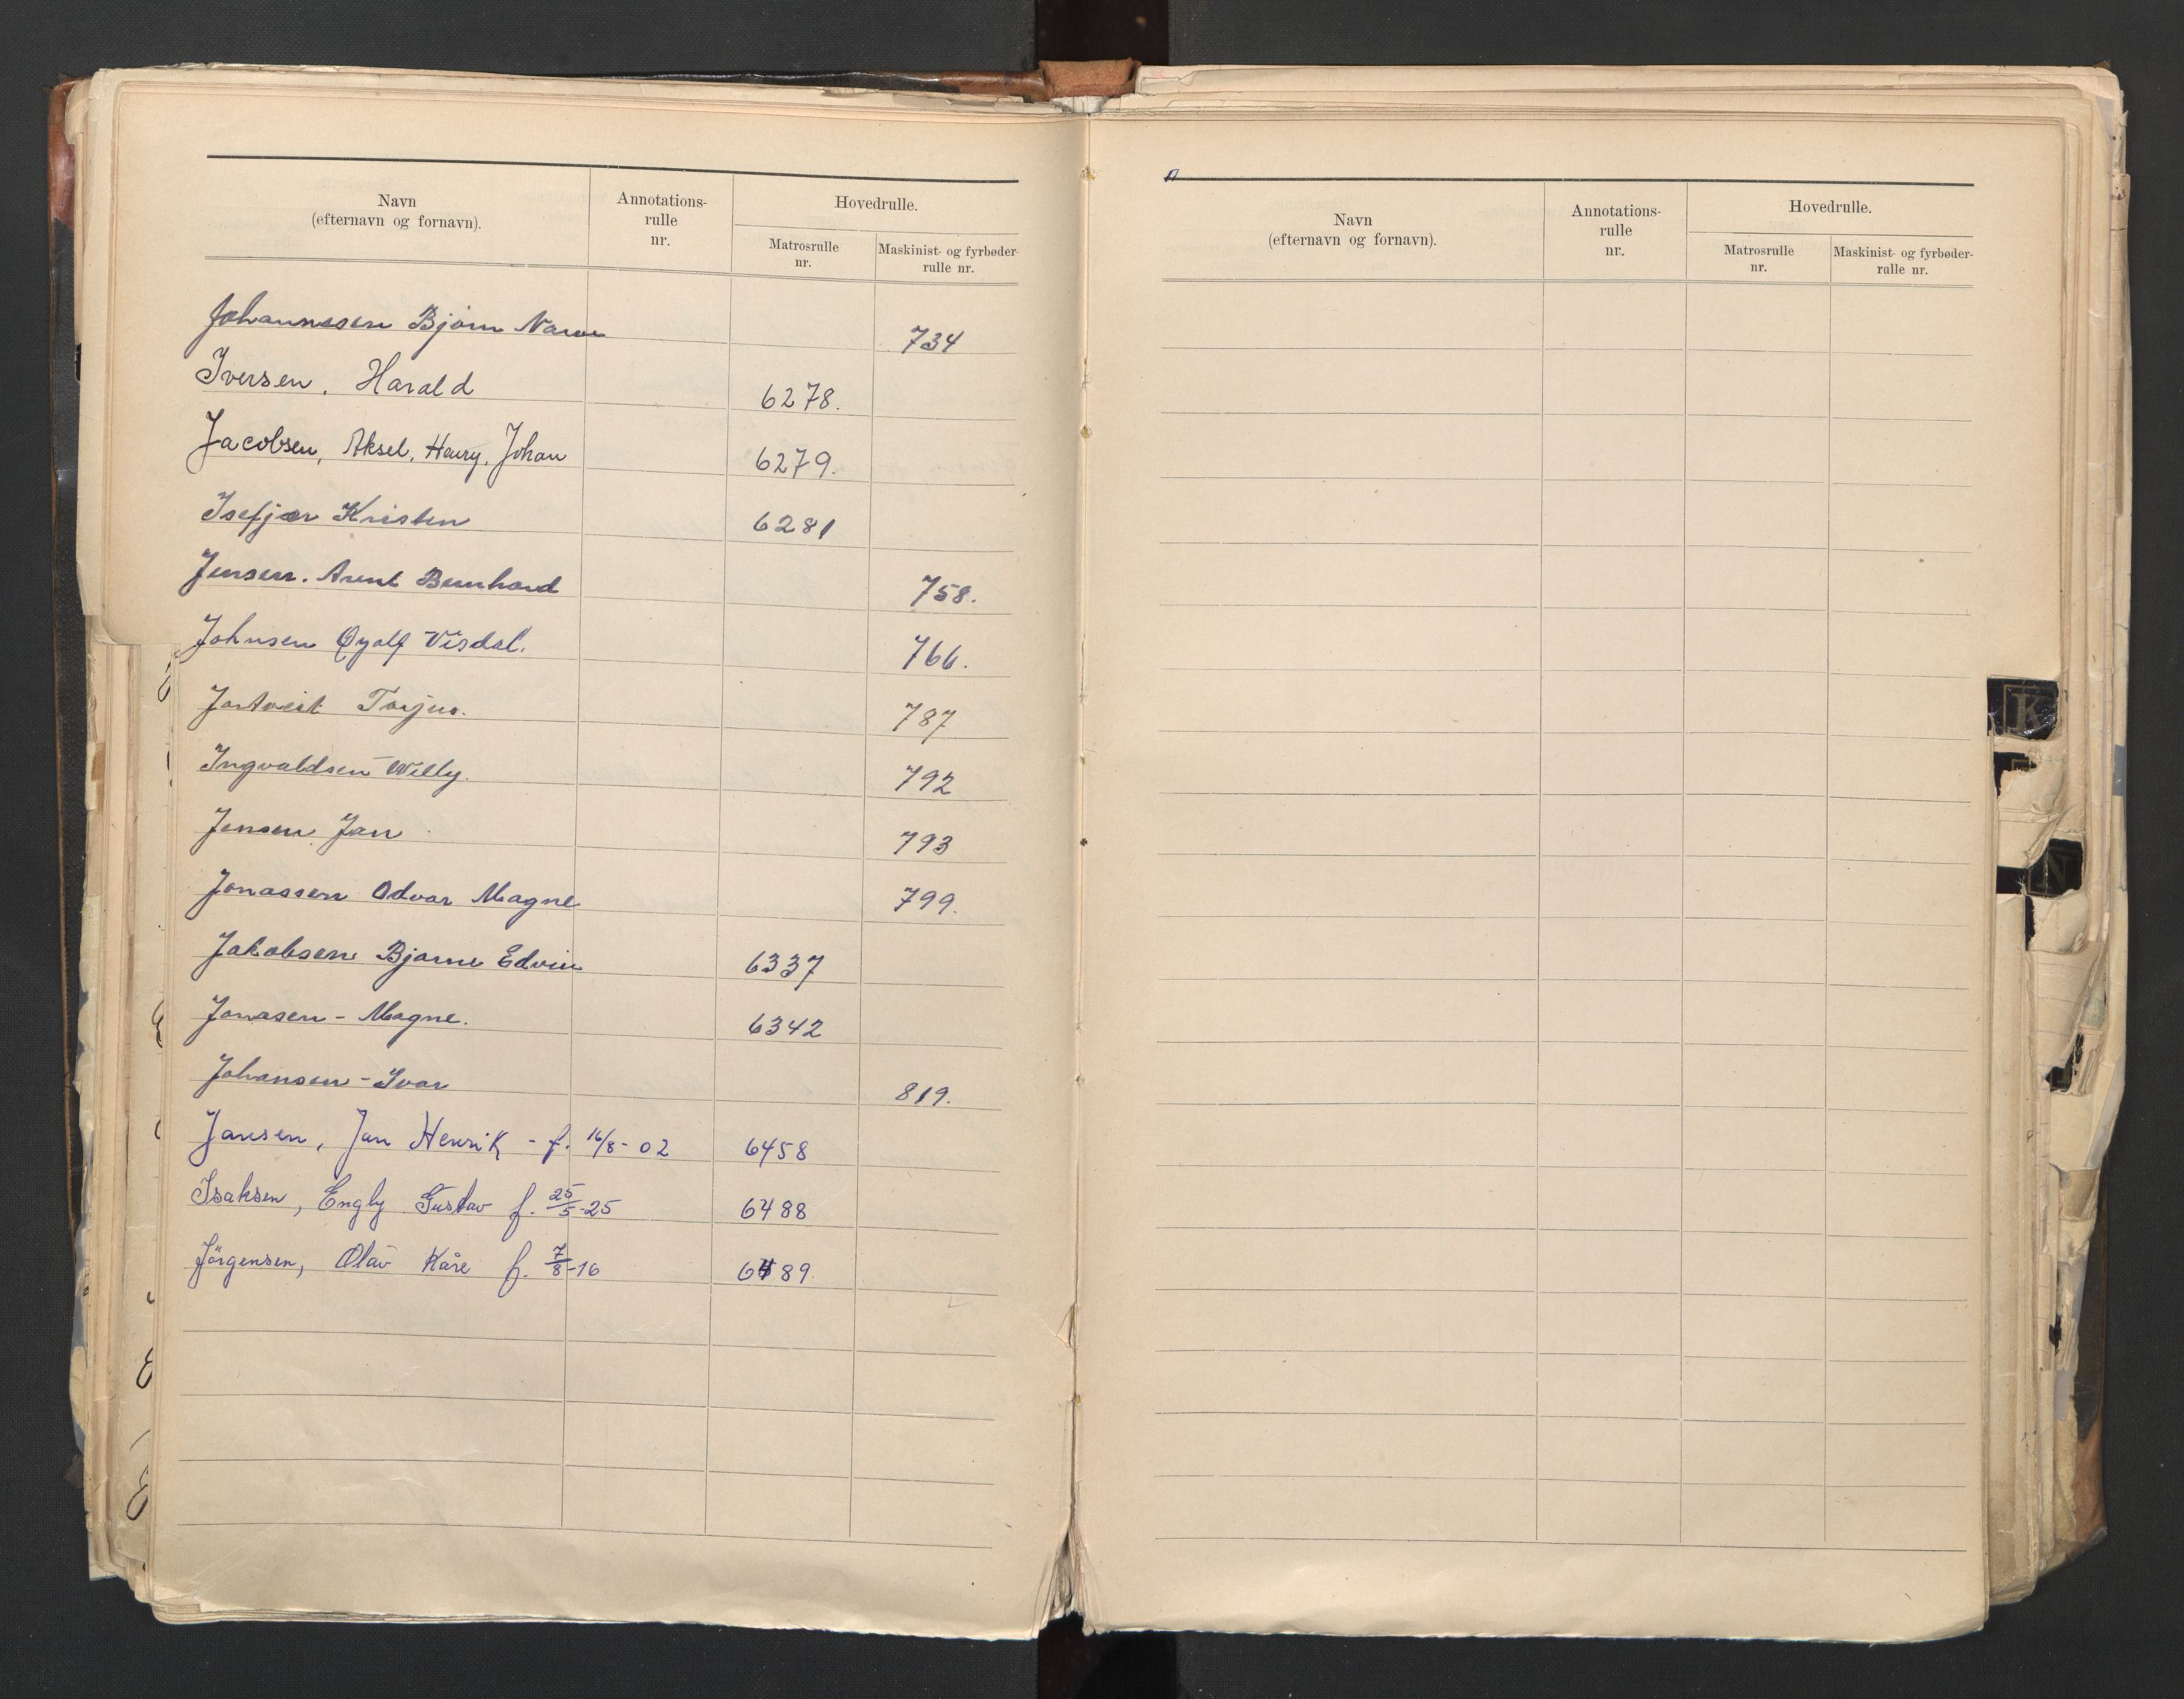 Navn
(efternavn og fornavn).
Annotations-
rulle
nr.
Hovedrulle.
Matrosrulle
nr.
Maskinist- og fyrbøder-
rulle nr.
Johannessen Bjørn 734
Iversen, Harald 6278.
Jacobsen, Aksel, Harry, Johan 6279.
Isefjær Kristen 6281
Jensen. Arent Bernhard 758.
Johnsen Øyolf Visdal. 766.
Jortveit Torjus. 787
Ingvaldsen Willy. 792
Jensen Jan 793
Jonassen Odvar Magne 799.
Jakobsen Bjarne Edvin 6337
Jonasen - Magne. 6342
Johansen - Ivar 819.
Jansen, Jan Henrik - f. 16/8 - 02 6458
Isaksen, Engly Gustav f. 25/5-25 6488
Jörgensen, Olav Kåre f. 7/8-16 6489
Navn
(efternavn og fornavn).
Annotations-
rulle
nr.
Hovedrulle.
Matrosrulle
nr.
Maskinist- og fyrbøder-
rulle nr.
K
N